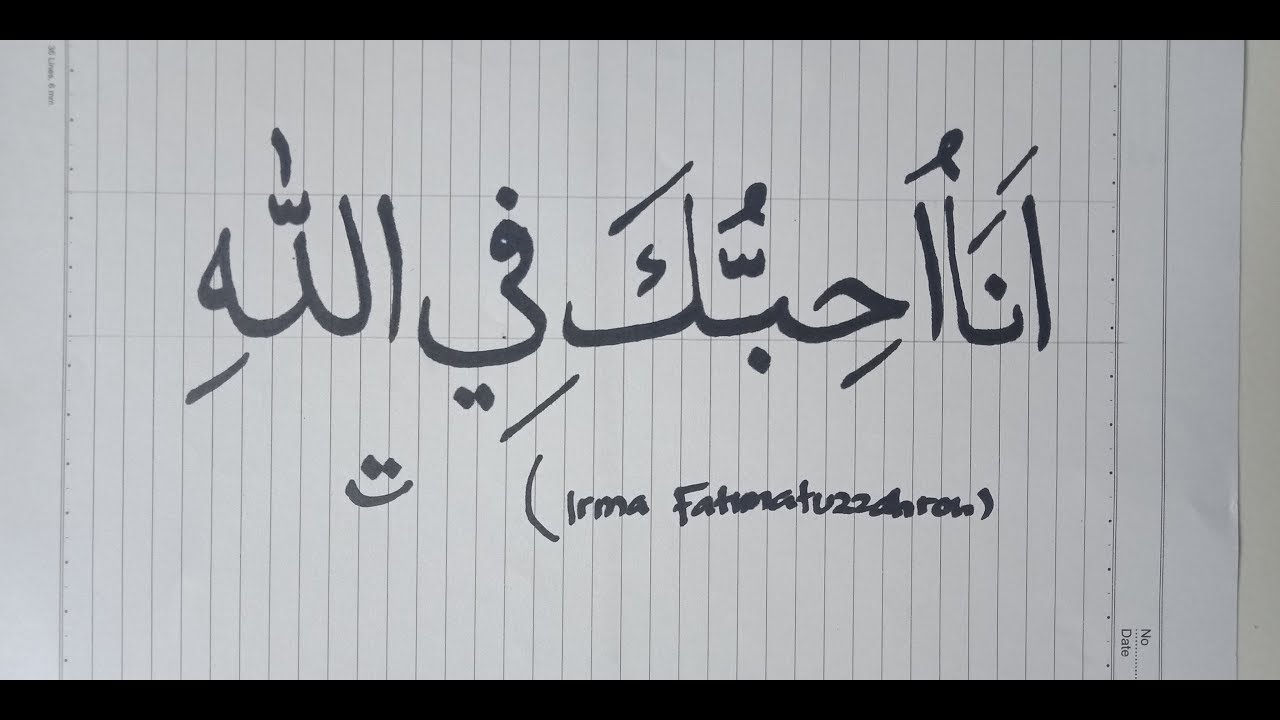 اَنَا اُحِبُّكَ فِي اللّٰهِ
ت
(Irma Fatimatuzzahroh)
36 Lines, 6 mm
No
Date